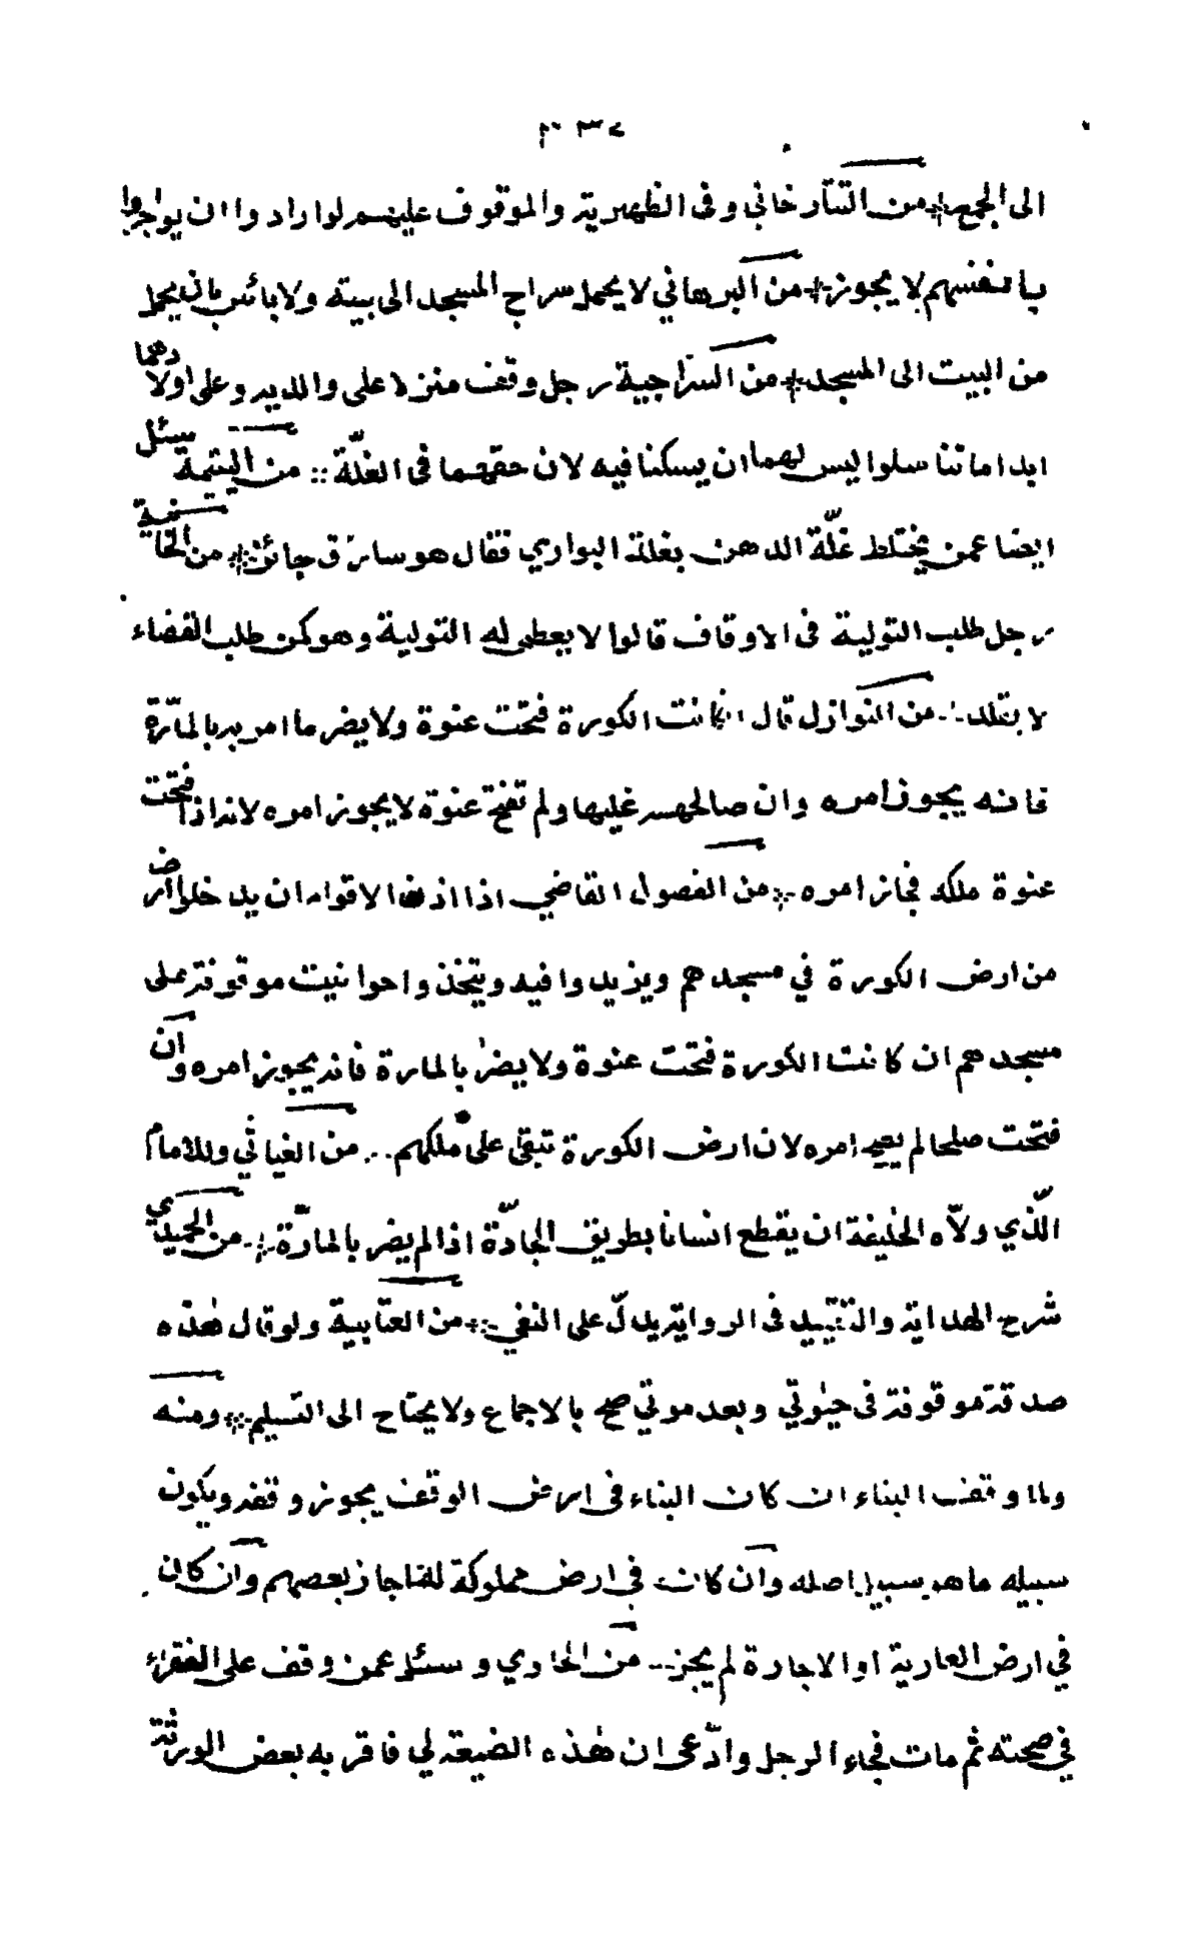 الى الجمع من التتارخاني وفى الظهيرية والموقوف عليهم لو ارادوا ان يواجروا
بانفسهم لا يجوز من البرهاني لا يحمل سراج المسجد الى بيته ولا بائس بان يحمل
من البيت الى المسجد من السراجية رجل وقف منزلا على والديه وعلى اولادهما
ابدا ما تناسلوا ليس لهما ان يسكنا فيه لان حقهما فى الغلّة :: من اليتيمة سئل
ايضا عمن يختلط غلّة الدهن بغلة البواري فقال هو سارق جائن من الخا
رجل طلب التولية فى الاوقاف قالوا لا يعطى له التولية وهو كمن طلب القضاء
لا يقلد من النوازل قال ان كانت الكورة فتحت عنوة ولا يضر ما امر به بالمارّة
فانه يجوز امره وان صالحهم عليها ولم تفتح عنوة لا يجوز امره لانه اذا فتحت
عنوة ملكه فجاز امره من الفصول القاضي اذا اذن الاقوام ان يدخلوا ارض
من ارض الكورة في مسجدهم ويزيدوا فيه ويتخذوا حوانيت موقوفة على
مسجدهم ان كانت الكورة فتحت عنوة ولا يضر بالمارة فانه يجوز امره وان
فتحت صلحا لم امره لان ارض الكورة تبقى على ملكهم .. من الغياثي وللامام
الّذي ولّاه الخليفة ان يقطع انسانا بطريق الجادّة اذا لم يضر بالمارّة من الحميدي
شرح الهداية والتقييد فى الرواية يدلّ على النفي من العتابية ولو قال هذه
صدقة موقوفة فى حيوتي وبعد موتي صح بالاجماع ولا يحتاج الى التسليم ومنه
ولما وقف البناء ان كان البناء فى ارض الوقف يجوز وقفه ويكون
سبيله ما هو سبيل اصله وان كانت في ارض مملوكة لها جاز بعضهم وان كان
في ارض العارية او الاجارة لم يجز .. من الحاوي وسئل عمن وقف على الفقراء
في صحته ثم مات فجاء الرجل وادّعى ان هذه الضيعة لي فاقر به بعض الورثة